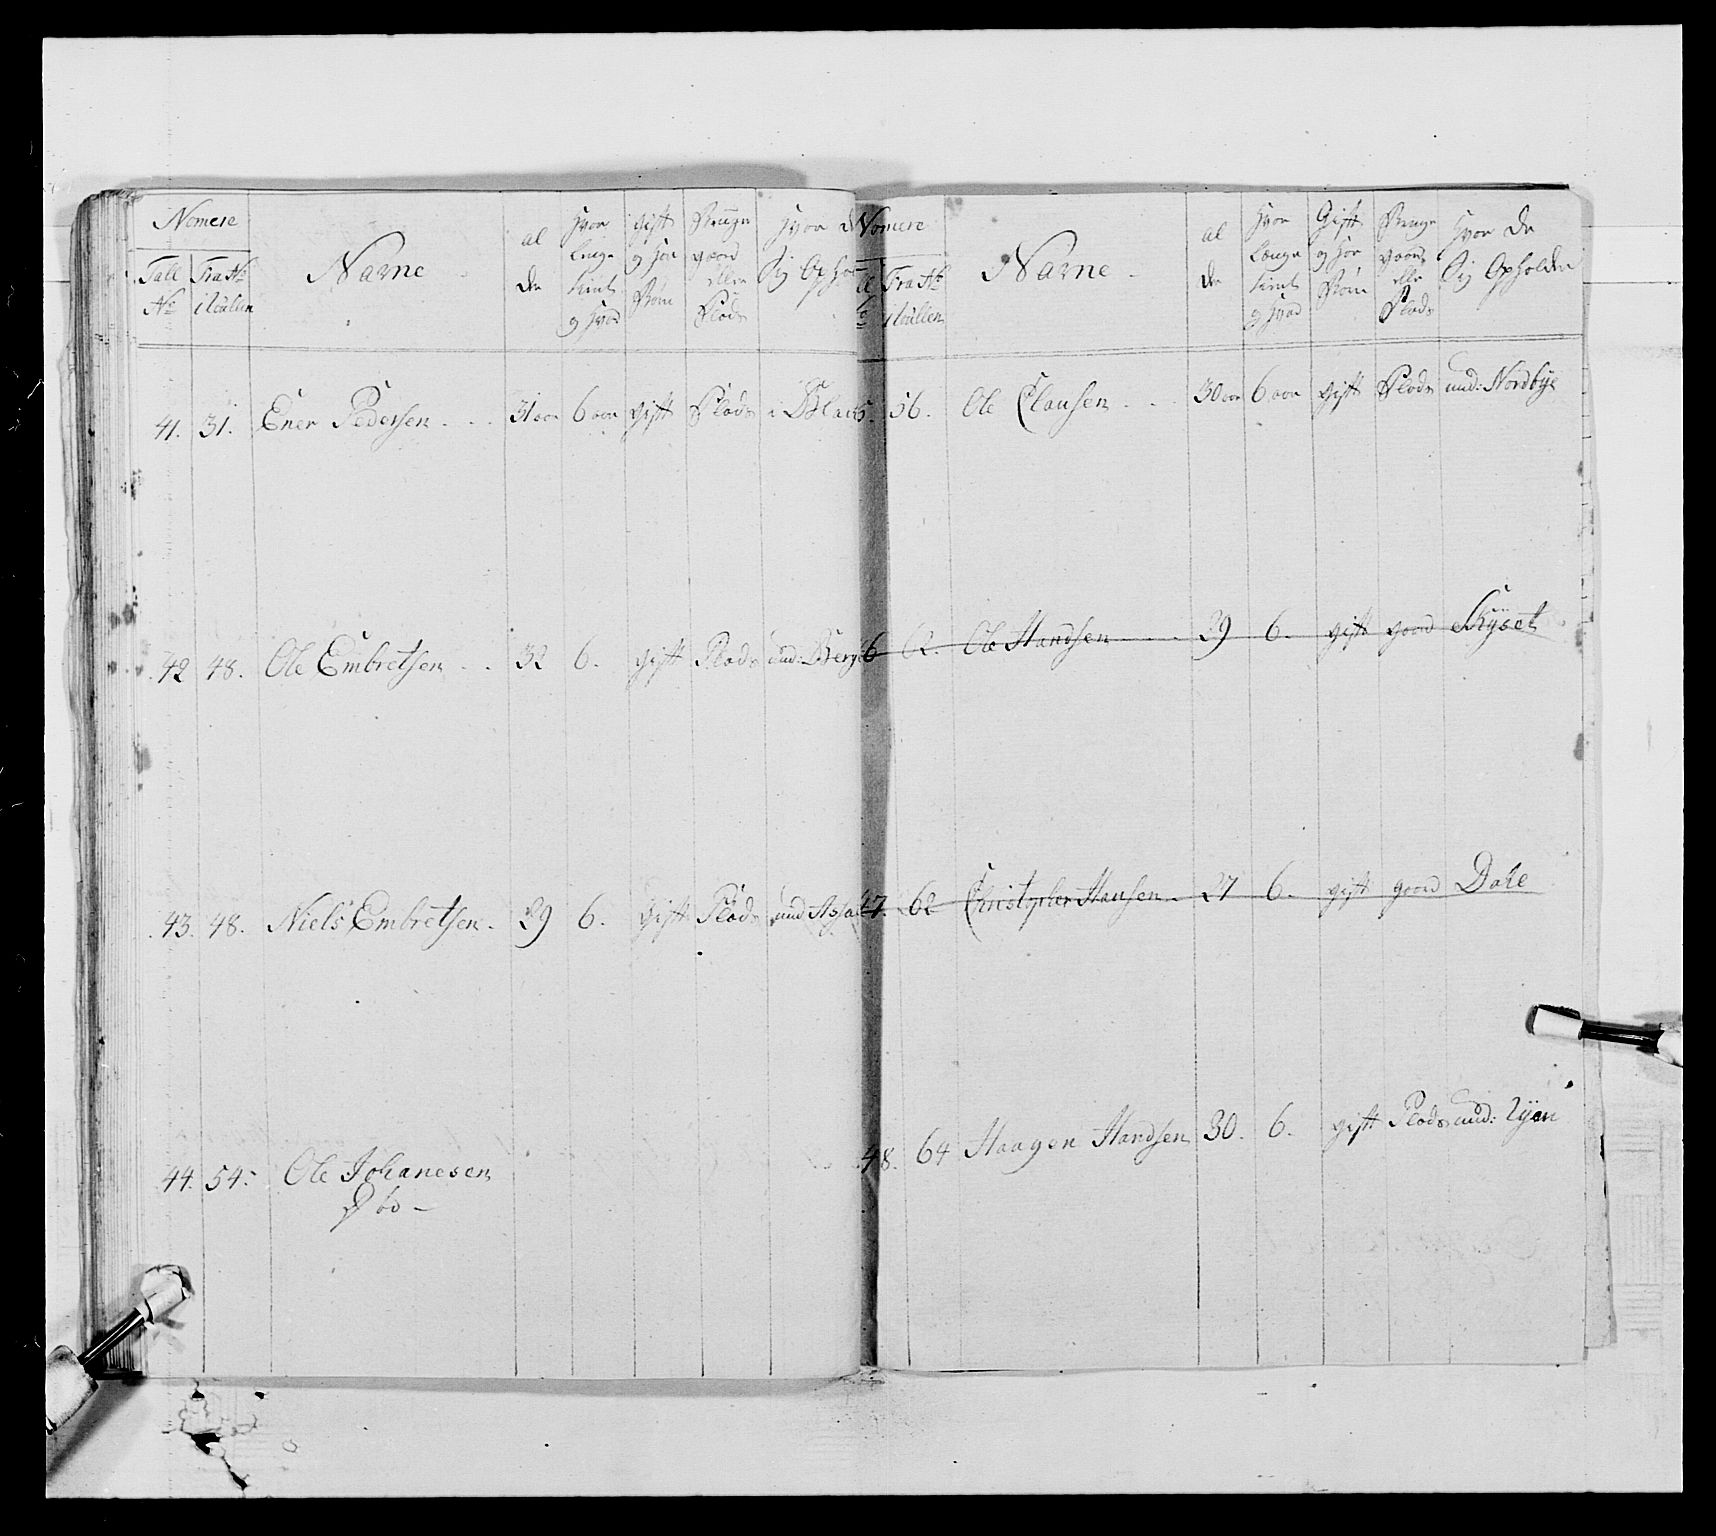 Nomere
Tall Fra No
No i Rullen
Navne
al
der
Hvor
Lenge
tient
og hvad
gift
og hør
Børn
Bruger
gaard
eller
Plads
Hvor
Sig Opho
41. 31. Ener Pedersen 31 aar 6 aar gift Plads i
42 48. Ole Embretsen 32 6. gift Plads und: Berg
43. 48. Niels Embretsen. 29 6. gift Plads und
44. 54. Ole Johanesen
Død
Nomere
Fra No
i Rullen
Navne
al
der
Hvor
Længe
tient
og hvad
Gift
og hør
Børn
Bruger
gaard
elle
Plads
Hvor De
Sig Opholder
56. Ole Clausen 30 aar 6 aar gift Plads und: Nordbye
6 62. Ole Handsen 29 6. gift gaard Skyset
47. 62 Christopher Hansen. 27 6. gift gaard Dahe
48. 64 Haagen Handsen 30. 6. gift Plads und: Lyen